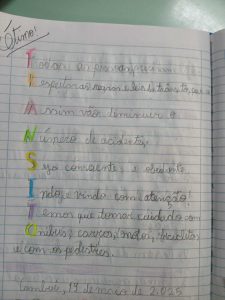 Ótimo!
Todas as pessoas
Respeitar as leis do trânsito,
Assim vão diminuir o
Número de acidentes.
Seja consciente e obediente
Indo e vindo com atenção!
Temos que tomar cuidado com
Ônibus, carros, motos, bicicletas
e com os pedestres.
19 de maio de 2025